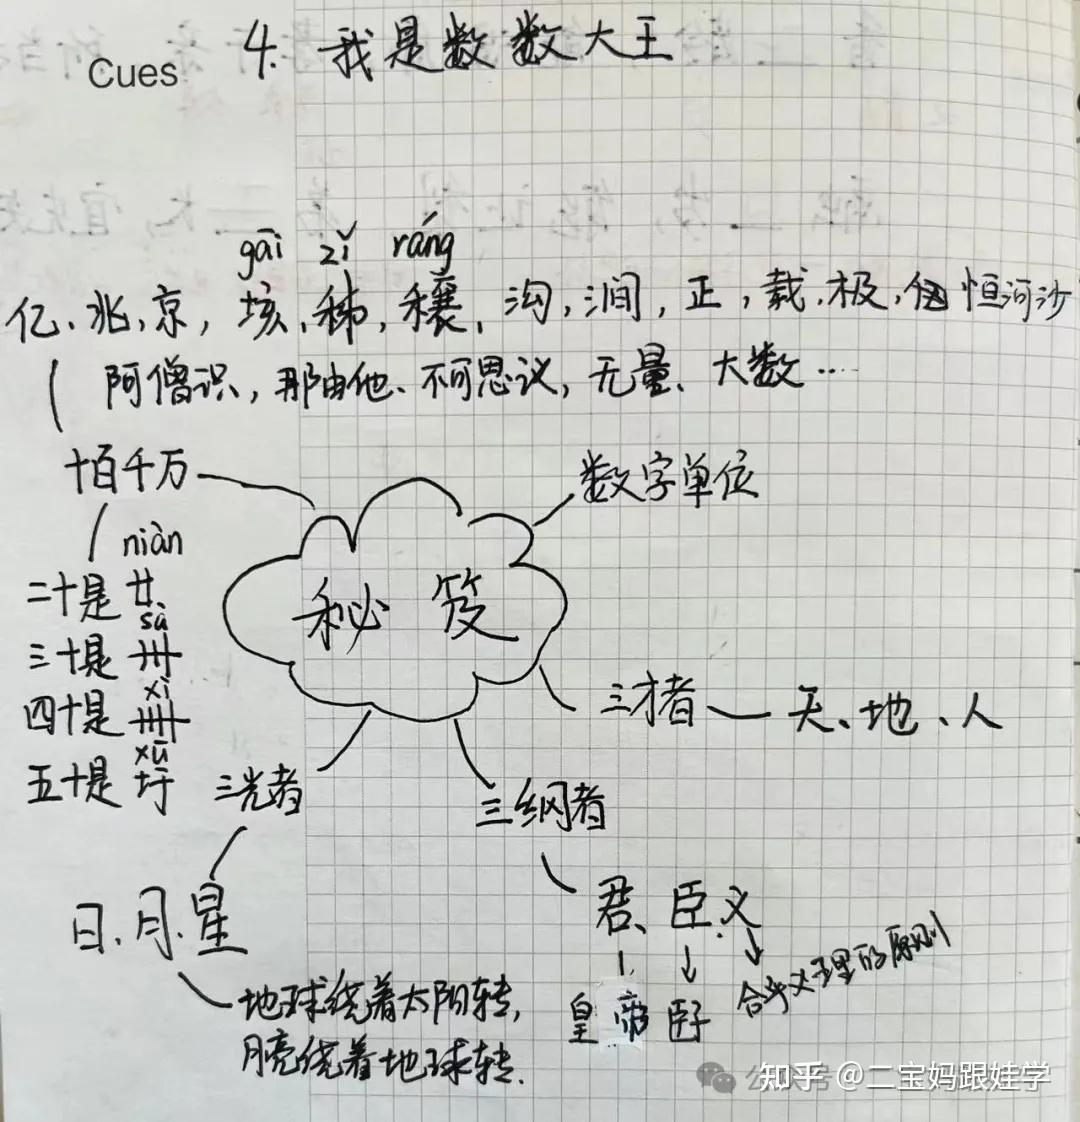 Cues
4. 我是数数大王
gāi zǐ ráng
亿、兆,京,垓,秭,穰,沟,涧,正,载,极,恒河沙
阿僧识,那由他、不可思议,无量、大数…
十百千万
数字单位
niàn
二十是廿
sà
三十是卅
xì
四十是卌
xū
五十是圩
秘笈
三才者 — 天、地、人
三光者
三纲者
日、月、星
君、臣、义
皇帝 臣子 合乎义理的原则
地球绕着太阳转,
月亮绕着地球转.
知乎 @二宝妈跟娃学